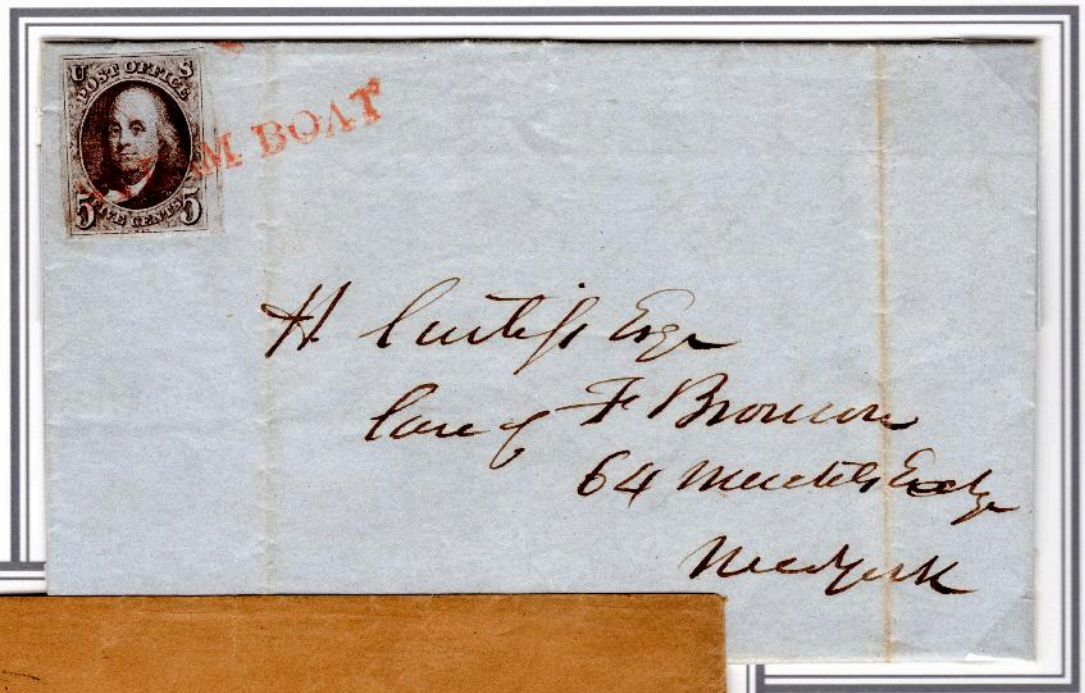 U S
POST OFFICE
5 FIVE CENTS 5
M BOAT
H Curtiss Esqr
Care of F Bronson
64 Merchts Exchge
New York